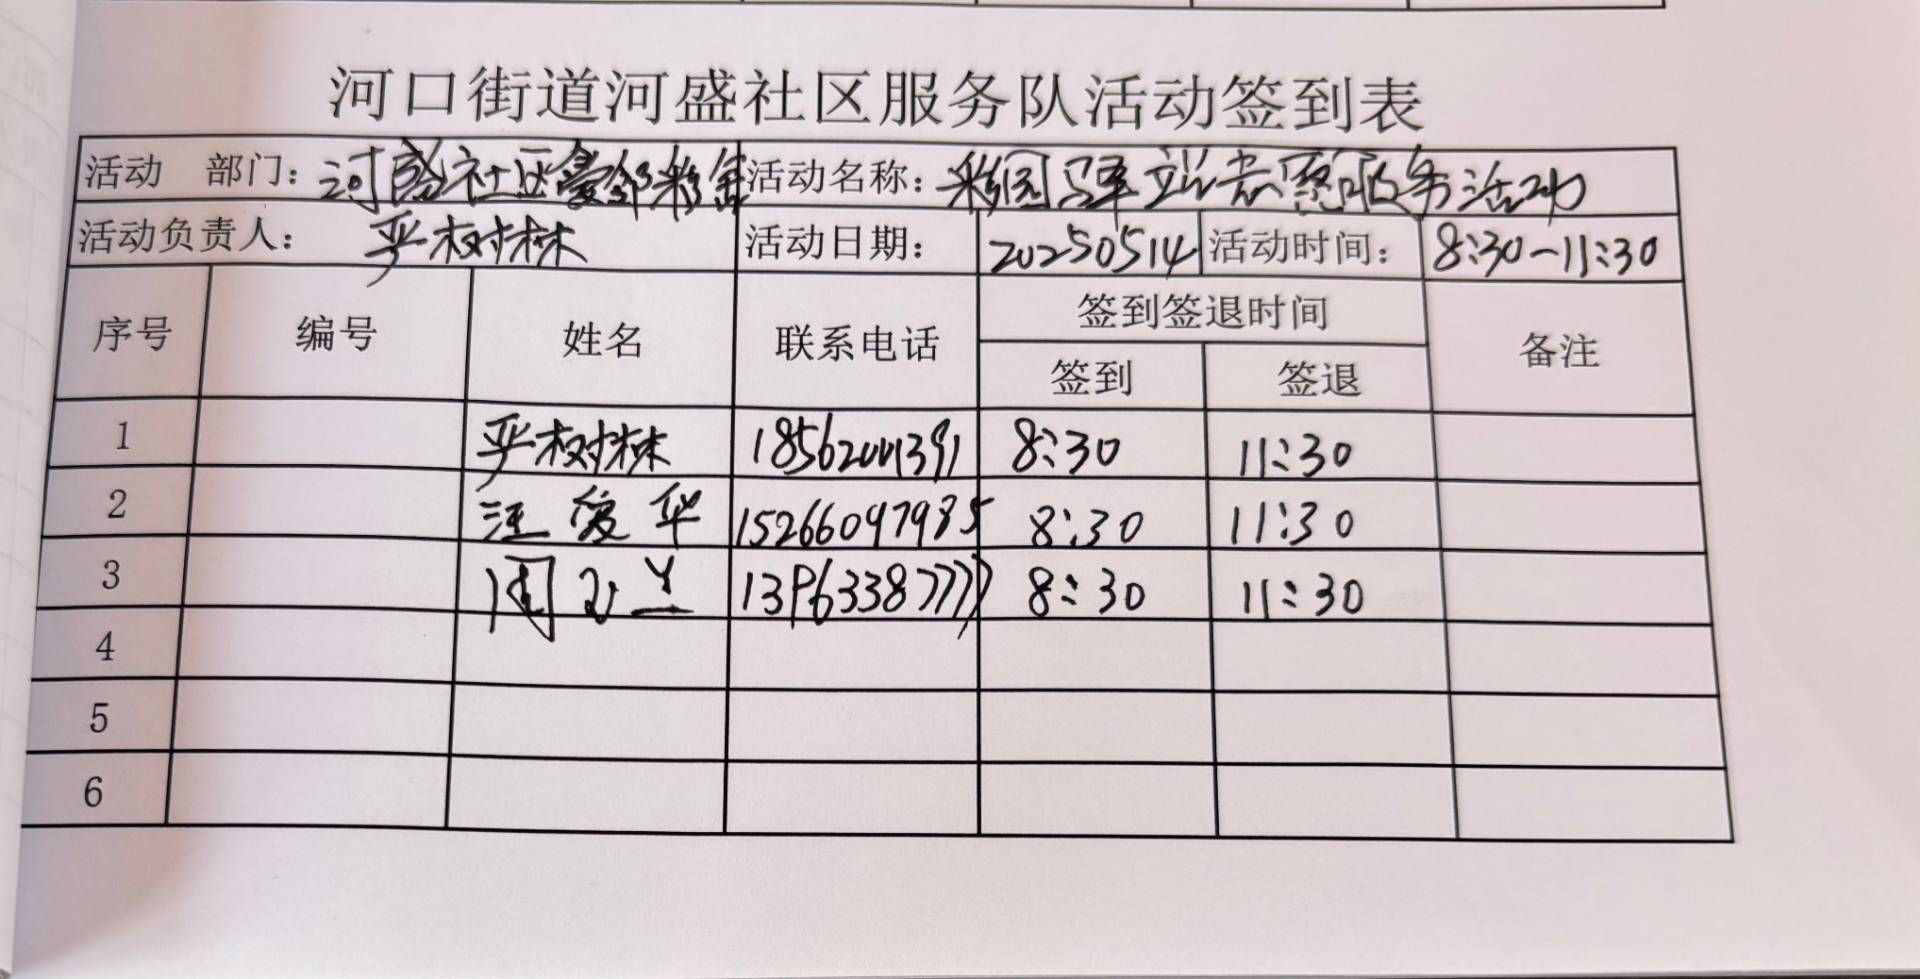 河口街道河盛社区服务队活动签到表
活动 部门：河盛社区爱邻彩 活动名称：彩园驿站志愿服务活动
活动负责人：严树林 活动日期：20250514 活动时间：8:30-11:30
序号 编号 姓名 联系电话 签到签退时间 备注
签到 签退
1 严树林 8:30 11:30
2 汪爱华 15266097985 8:30 11:30
3 周 兰 13963387777 8:30 11:30
4
5
6